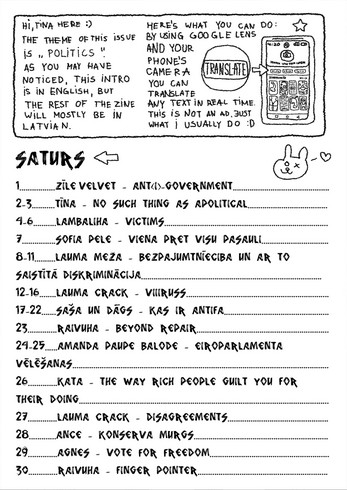 HI, TĪNA HERE :)
THE THEME OF THIS ISSUE
IS „POLITICS".
AS YOU MAY HAVE
NOTICED, THIS INTRO
IS IN ENGLISH, BUT
THE REST OF THE ZINE
WILL MOSTLY BE IN
LATVIAN.
HERE'S WHAT YOU CAN DO:
BY USING GOOGLE LENS
AND YOUR
PHONE'S
CAMERA
YOU CAN
TRANSLATE
ANY TEXT IN REAL TIME.
THIS IS NOT AN AD, JUST
WHAT I USUALLY DO :D
TRANSLATE
4:20
SATURS
1..........ZĪLE VELVET - ANT(I)-GOVERNMENT..........
2-3..........TĪNA - NO SUCH THING AS APOLITICAL..........
4-6..........LAMBALIHA - VICTIMS..........
7..........SOFIA PELE - VIENA PRET VISU PASAULI..........
8-11..........LAUMA MEŽA - BEZPAJUMTNIECĪBA UN AR TO
SAISTĪTĀ DISKRIMINĀCIJA..........
12-16..........LAUMA CRACK - VIIIRUSS..........
17-22..........SAŠA UN DĀGS - KAS IR ANTIFA..........
23..........RAIVUHA - BEYOND REPAIR..........
24-25..........AMANDA PAUPE BALODE - EIROPARLAMENTA
VĒLĒŠANAS..........
26..........KATA - THE WAY RICH PEOPLE GUILT YOU FOR
THEIR DOING..........
27..........LAUMA CRACK - DISAGREEMENTS..........
28..........ANCE - KONSERVA MURGS..........
29..........AGNES - VOTE FOR FREEDOM..........
30..........RAIVUHA - FINGER POINTER..........